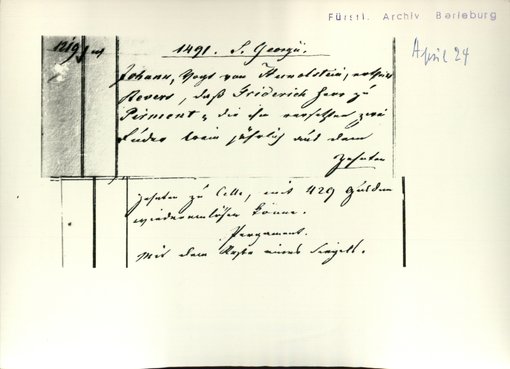 Fürstl. Archiv Berleburg
April 24
1219
1491. S. Georgii.
Johann, Vogt von Hunolstein,
Revers, daß Friderich Herr zu
Pirmont, die ihm versetzten zwei
Fuder wein jährlich aus dem
Zehnten
Zehnten zu Celle, mit 429 Gulden
wiedereinlösen könne.
Pergament.
Mit dem Reste eines Siegels.